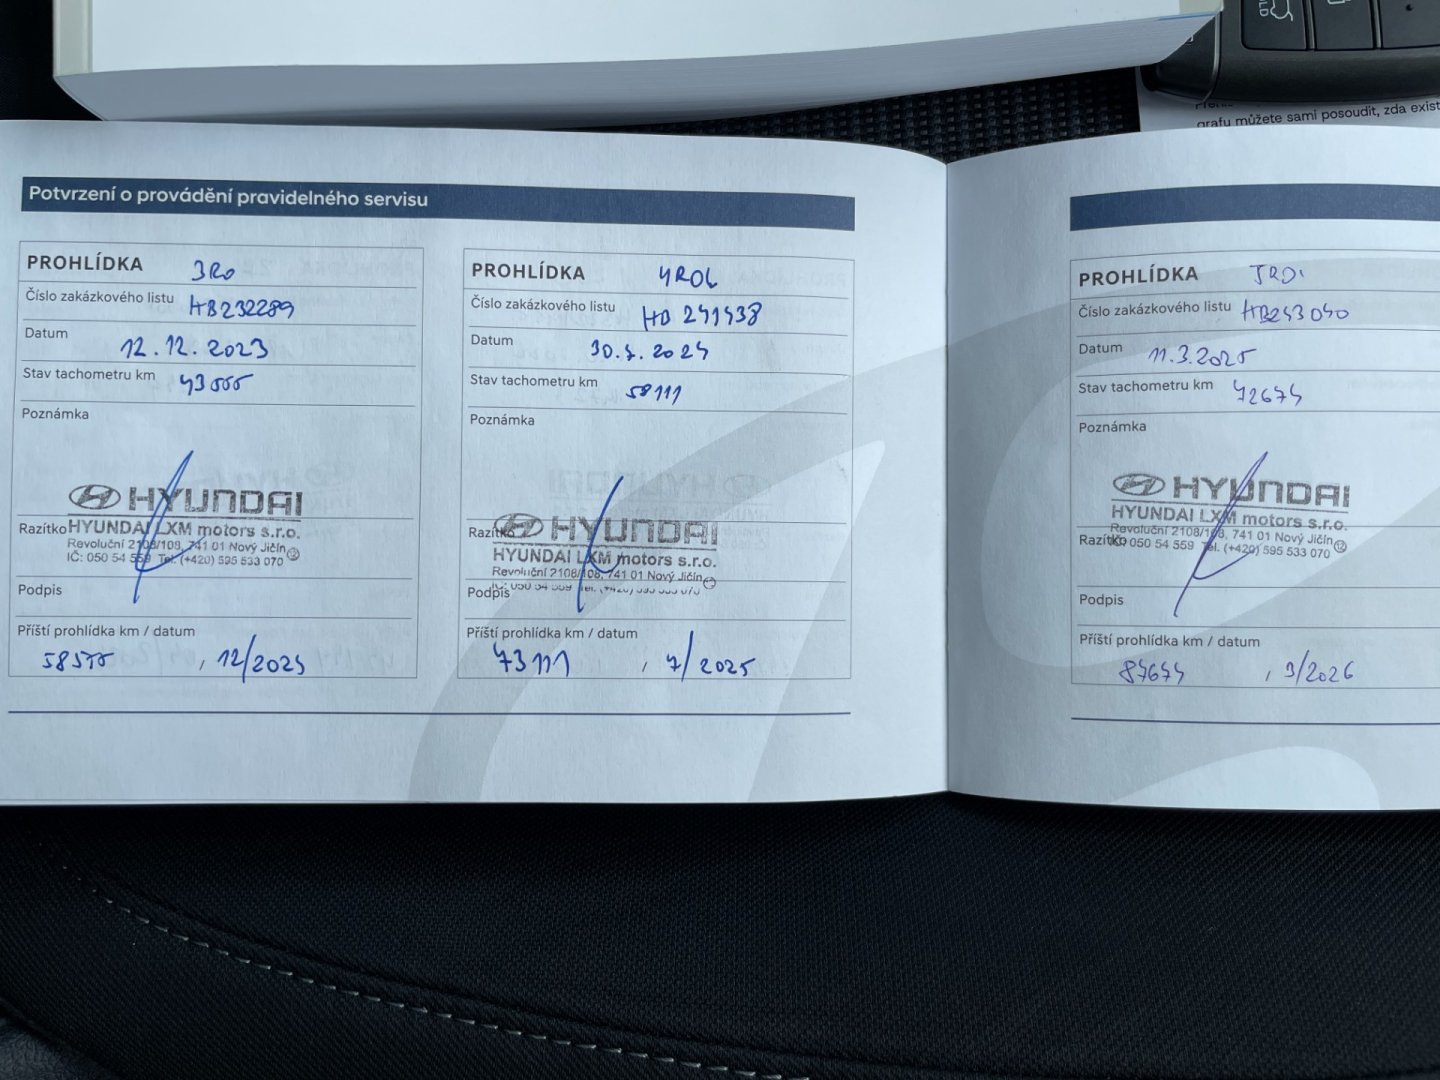 HOLD
grafu můžete sami posoudit, zda exist
Potvrzení o provádění pravidelného servisu
PROHLÍDKA 3RO
Číslo zakázkového listu HB232289
Datum 12.12.2023
Stav tachometru km 43555
Poznámka
HYUNDAI
Razítko HYUNDAI LXM motors s.r.o.
Revoluční 2108/108, 741 01 Nový Jičín 12
IČ: 050 54 559 Tel. (+420) 595 533 070
Podpis
Příští prohlídka km / datum
58555 , 12/2024
PROHLÍDKA 4ROL
Číslo zakázkového listu HB 241438
Datum 30.7.2024
Stav tachometru km 58111
Poznámka
HYUNDAI
Razítko
HYUNDAI LXM motors s.r.o.
Revoluční 2108/108, 741 01 Nový Jičín
Podpis IČ: 050 54 559 Tel. (+420) 595 533 070
Příští prohlídka km / datum
73111 , 7/2025
PROHLÍDKA
Číslo zakázkového listu HB243040
Datum 11.3.2025
Stav tachometru km 72674
Poznámka
HYUNDAI
HYUNDAI LXM motors s.r.o.
Revoluční 2108/108, 741 01 Nový Jičín 12
Razítko IČ: 050 54 559 Tel. (+420) 595 533 070
Podpis
Příští prohlídka km / datum
87674 , 3/2026